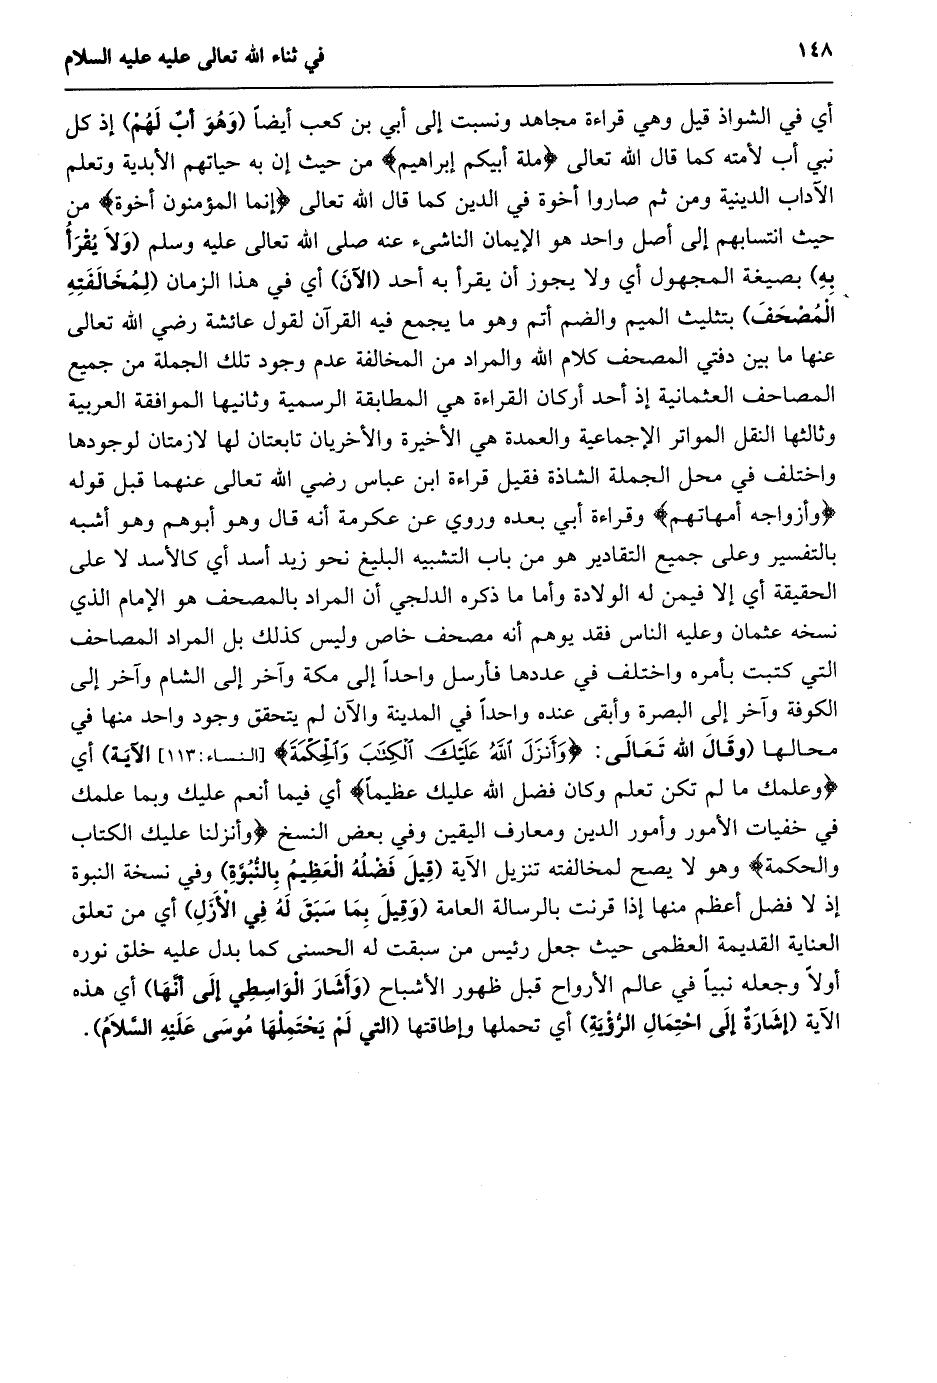 ١٤٨
في ثناء الله تعالى عليه عليه السلام
أي في الشواذ قيل وهي قراءة مجاهد ونسبت إلى أبي بن كعب أيضاً (وَهُوَ أبٌ لَهُمْ) إذ كل
نبي أب لأمته كما قال الله تعالى ﴿ملة أبيكم إبراهيم﴾ من حيث إن به حياتهم الأبدية وتعلم
الآداب الدينية ومن ثم صاروا أخوة في الدين كما قال الله تعالى ﴿إنما المؤمنون أخوة﴾ من
حيث انتسابهم إلى أصل واحد هو الإيمان الناشىء عنه صلى الله تعالى عليه وسلم (وَلاَ يُقْرَأُ
بِهِ) بصيغة المجهول أي ولا يجوز أن يقرأ به أحد (الآنَ) أي في هذا الزمان (لِمُخَالَفَتِهِ
الْمُصْحَفَ) بتثليث الميم والضم أتم وهو ما يجمع فيه القرآن لقول عائشة رضي الله تعالى
عنها ما بين دفتي المصحف كلام الله والمراد من المخالفة عدم وجود تلك الجملة من جميع
المصاحف العثمانية إذ أحد أركان القراءة هي المطابقة الرسمية وثانيها الموافقة العربية
وثالثها النقل المواتر الإجماعية والعمدة هي الأخيرة والأخريان تابعتان لها لازمتان لوجودها
واختلف في محل الجملة الشاذة فقيل قراءة ابن عباس رضي الله تعالى عنهما قبل قوله
﴿وأزواجه أمهاتهم﴾ وقراءة أبي بعده وروي عن عكرمة أنه قال وهو أبوهم وهو أشبه
بالتفسير وعلى جميع التقادير هو من باب التشبيه البليغ نحو زيد أسد أي كالأسد لا على
الحقيقة أي إلا فيمن له الولادة وأما ما ذكره الدلجي أن المراد بالمصحف هو الإمام الذي
نسخه عثمان وعليه الناس فقد يوهم أنه مصحف خاص وليس كذلك بل المراد المصاحف
التي كتبت بأمره واختلف في عددها فأرسل واحداً إلى مكة وآخر إلى الشام وآخر إلى
الكوفة وآخر إلى البصرة وأبقى عنده واحداً في المدينة والآن لم يتحقق وجود واحد منها في
محالها (وقَالَ الله تَعَالَى: ﴿وَأَنزَلَ ٱللَّهُ عَلَيْكَ ٱلْكِتَٰبَ وَٱلْحِكْمَةَ﴾ [النساء:١١٣] الآيَة) أي
﴿وعلمك ما لم تكن تعلم وكان فضل الله عليك عظيماً﴾ أي فيما أنعم عليك وبما علمك
في خفيات الأمور وأمور الدين ومعارف اليقين وفي بعض النسخ ﴿وأنزلنا عليك الكتاب
والحكمة﴾ وهو لا يصح لمخالفته تنزيل الآية (قِيلَ فَضْلُهُ الْعَظِيمُ بِالنُّبُوَّةِ) وفي نسخة النبوة
إذ لا فضل أعظم منها إذا قرنت بالرسالة العامة (وَقِيلَ بِمَا سَبَقَ لَهُ فِي الْأَزَلِ) أي من تعلق
العناية القديمة العظمى حيث جعل رئيس من سبقت له الحسنى كما بدل عليه خلق نوره
أولاً وجعله نبياً في عالم الأرواح قبل ظهور الأشباح (وَأَشَارَ الْوَاسِطِي إِلَى أَنَّهَا) أي هذه
الآية (إشَارَةٌ إلَى احْتِمَالِ الرُّؤْيَةِ) أي تحملها وإطاقتها (التي لَمْ يَحْتَمِلْهَا مُوسَى عَلَيْهِ السَّلاَمُ).